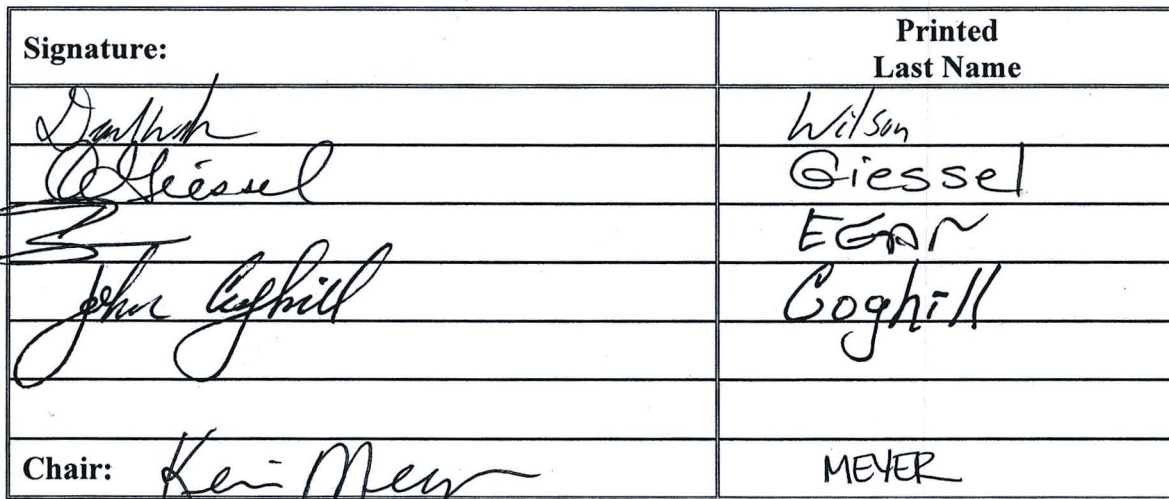 Signature: Printed
Last Name
Wilson
Giessel Giessel
EGAN
John Coghill Coghill
Chair: Kevin Meyer MEYER